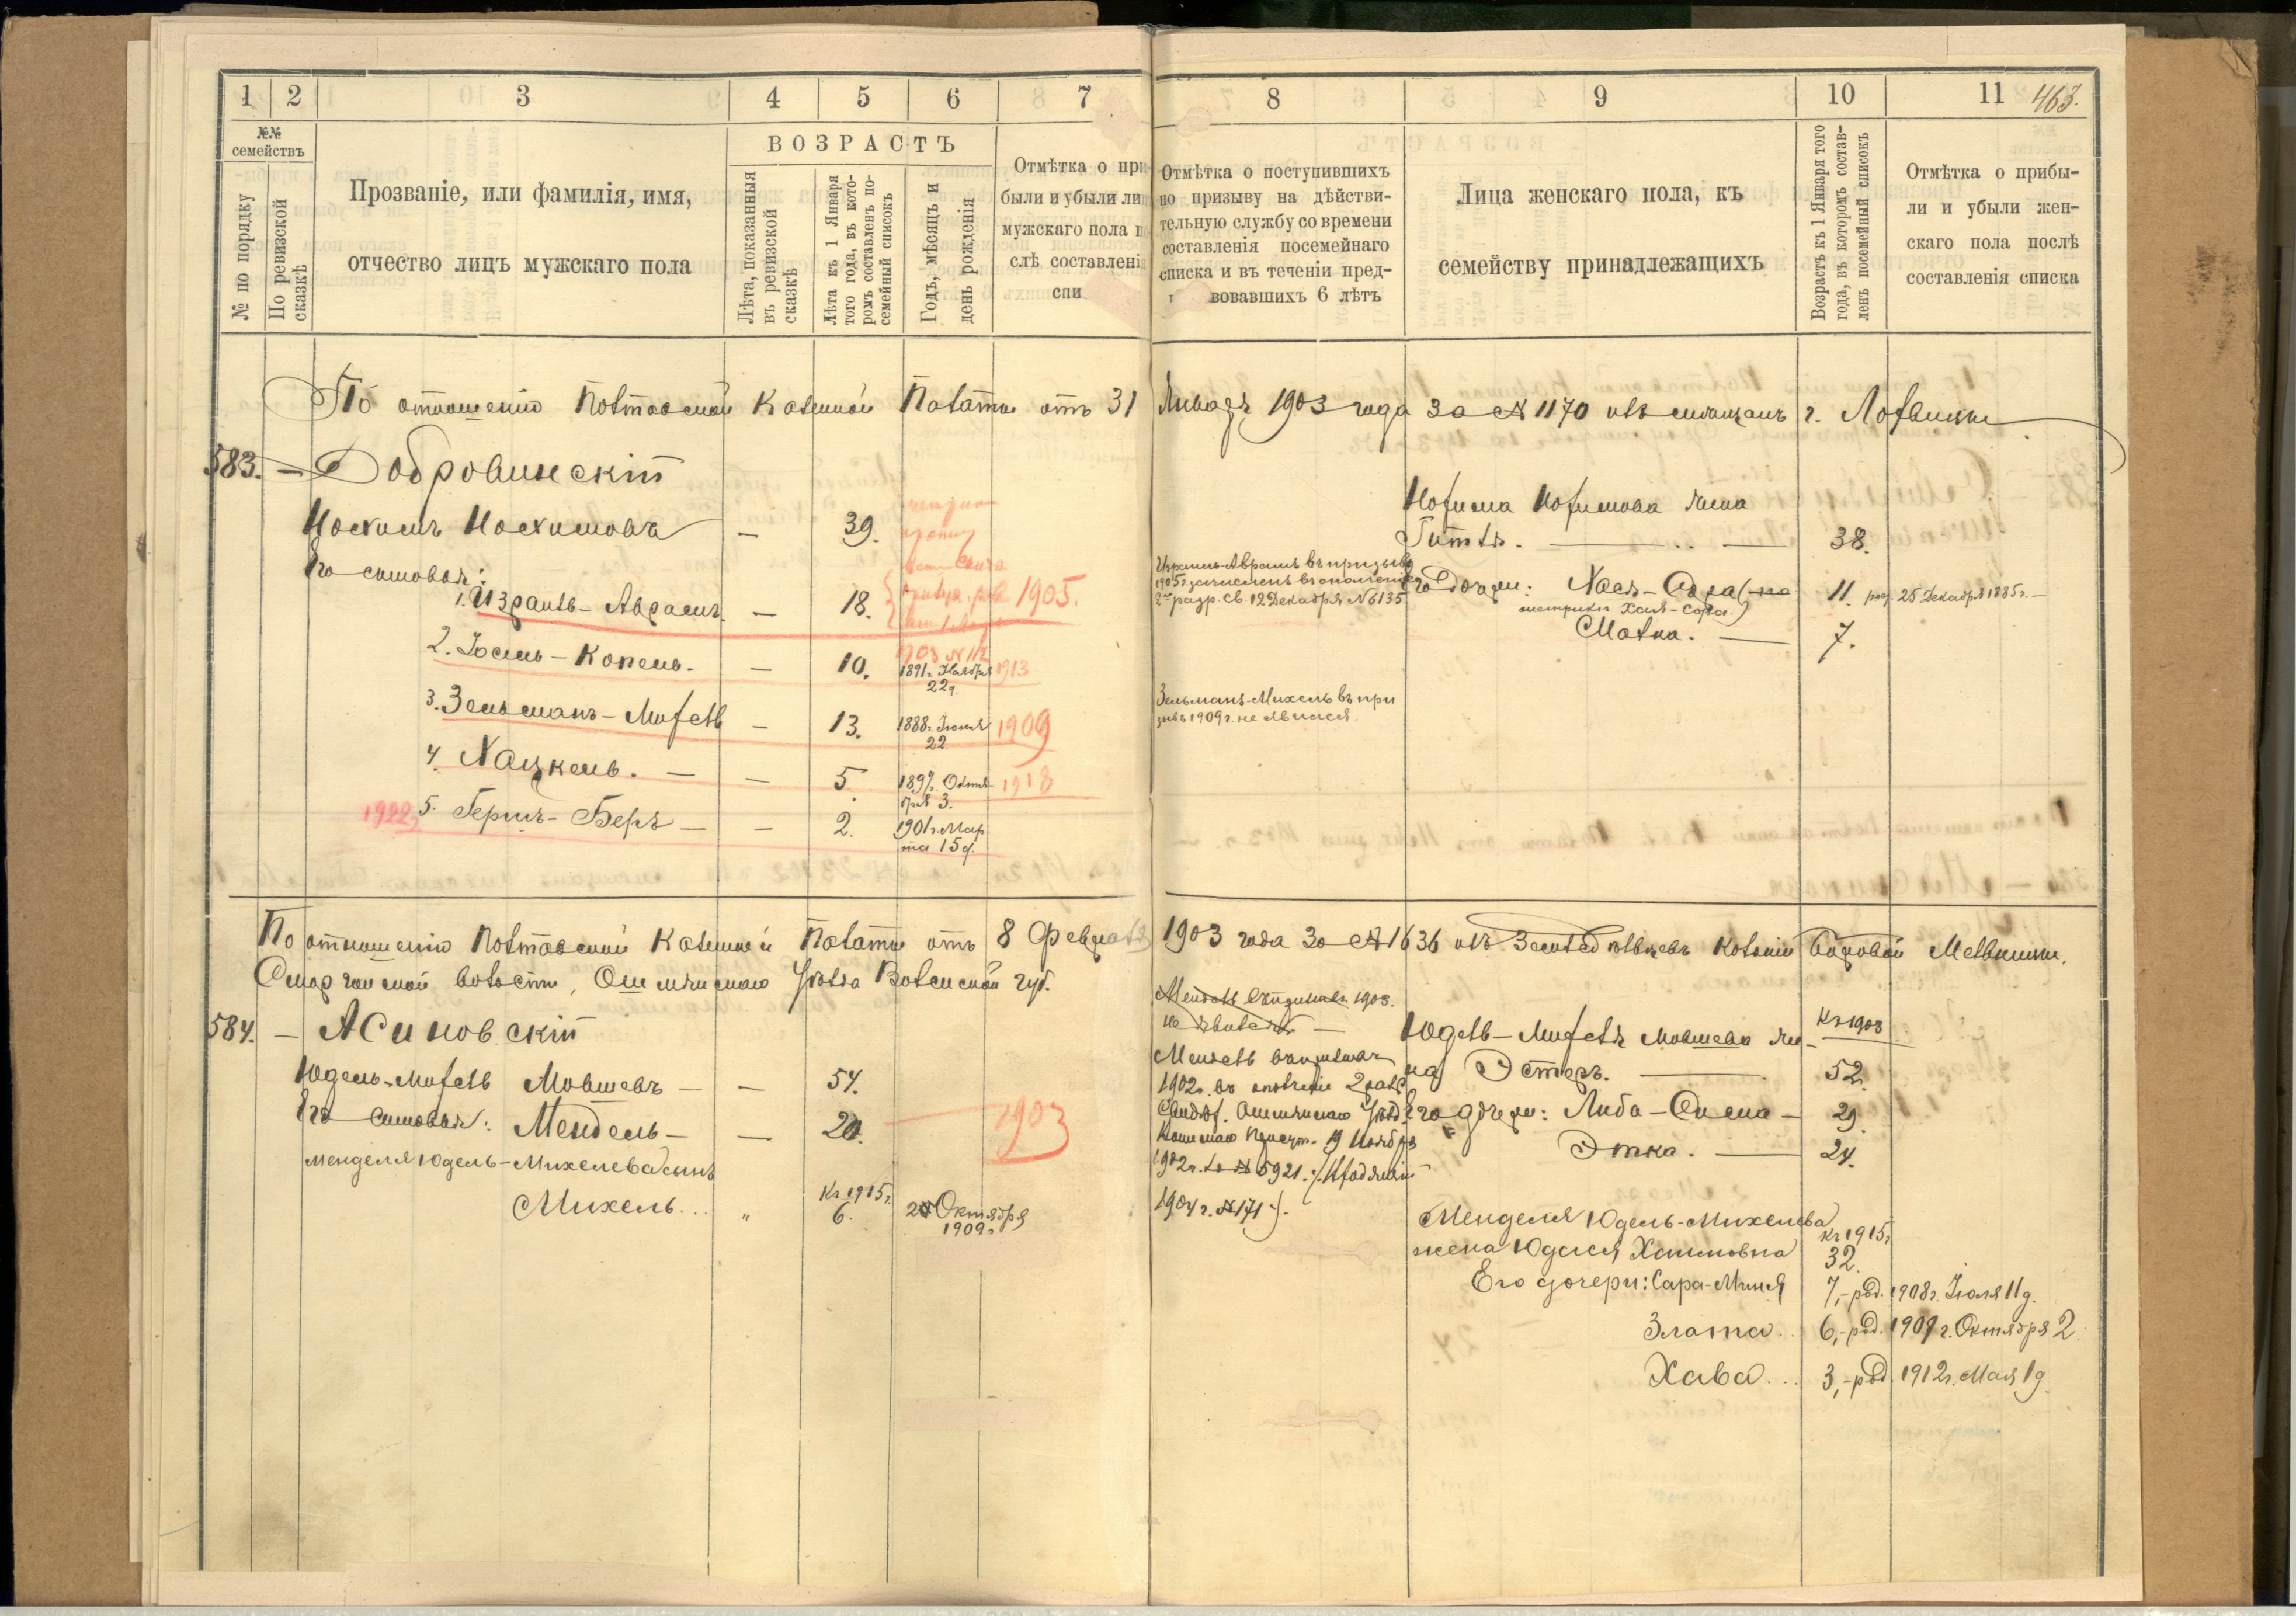 1
2
3
4
5
6
7
№№
семействъ
№ по порядку
По ревизской
сказкѣ
Прозваніе, или фамилія, имя,
отчество лицъ мужскаго пола
ВОЗРАСТЪ
Лѣта, показанныя
въ ревизской
сказкѣ
Лѣта къ 1 Января
того года, въ кото-
ромъ составленъ по-
семейный списокъ
Годъ, мѣсяцъ и
день рожденія
Отмѣтка о при
были и убыли ли
мужскаго пола п
слѣ составлені
спи
8
9
10
11
463.
Отмѣтка о поступившихъ
по призыву на дѣйстви-
тельную службу со времени
составленія посемейнаго
списка и въ теченіи пред-
вовавшихъ 6 лѣтъ
Лица женскаго пола, къ
семейству принадлежащихъ
Возрастъ къ 1 Января того
года, въ которомъ состав-
ленъ посемейный списокъ
Отмѣтка о прибы-
ли и убыли жен-
скаго пола послѣ
составленія списка
По отношенію Полтавской Казенной Палаты отъ 31 Января 1903 года за № 1170 изъ мѣщанъ г. Лохвицы
583. — Добровинскій
Нохимъ Нохимовъ — 39.
Его сыновья:
1. Израиль-Аврамъ — 18. 1905.
2. Іосель-Копель. — 10. 1891г. Ноября 1913
22д.
3. Зельманъ-Михель — 13. 1888г. Іюля 1909
22
4. Хацкель. — — 5. 1897г. Октя- 1918
бря 3.
1922 5. Гершъ-Беръ — — 2. 1901г. Мар
та 15д.
Израиль-Аврамъ въ призывъ
1905г. зачисленъ въ ополченіе
2го разр. св. 12 Декабря № 6135
Зельманъ-Михель въ при
зывъ 1909г. не явился.
Нохима Нохимова жена
Гитля. — 38.
Его дочери: Хася-Сора (по 11. рож. 25 Декабря 1885г. —
метрики Хая-Сора.)
Малка. — 7.
По отношенію Полтавской Казенной Палаты отъ 8 Февраля 1903 года за № 1636 изъ Земледѣльцевъ Колоніи Сморгонской волости, Ошмянскаго уѣзда Виленской губ.
584. — Асиновскій
Юдель-Михель Мовшевъ — — 54.
Его сыновья: Мендель — — 20. 1903
Менделя Юдель-Михелева сынъ
Къ 1915г.
Михель... „ 6. 20 Октября
1909г.
Мендель въ призывъ 1903.
не явился —
Мендель въ призывъ
1902г. въ ополченіе 2 разр.
Ошмянскаго Уѣзд.
19 Ноября
1902г. за № 5921.
1904 г. № 171
Юдель-Михеля Мовшева же- Къ 1903
на Эстеръ. — 52.
Его дочери: Либа-Сима — 29.
Этка. — 24.
Менделя Юдель-Михелева
Къ 1915г.
жена Юдася Хаимовна 32.
Его дочери: Сара-Миня 7,-род. 1908г. Іюля 11д.
Злата.. 6,-род. 1909 г. Октября 2
Хава... 3,-род. 1912г. Мая 1д.